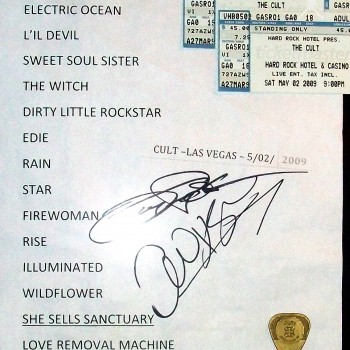 ELECTRIC OCEAN
L'IL DEVIL
SWEET SOUL SISTER
THE WITCH
DIRTY LITTLE ROCKSTAR
EDIE
RAIN
STAR
FIREWOMAN
RISE
ILLUMINATED
WILDFLOWER
SHE SELLS SANCTUARY
LOVE REMOVAL MACHINE
CULT –LAS VEGAS – 5/02/ 2009
GASRO1
VI 1X
GA0
727AZW
A27MAR9
THE CULT
UHB0502
GASRO1 GA0 18
ADUL
STANDING ONLY
45.0
7.25
HARD ROCK HOTEL PRES.
THE CULT
HARD ROCK HOTEL & CASINO
LIVE ENT. TAX INCL.
SAT MAY 02 2009 9:00PM